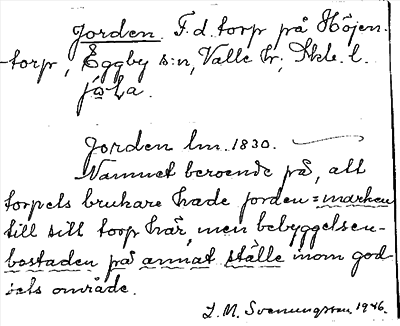 Jorden. F.d. torp på Höjen-
torp, Eggby s:n, Valle hr; Skbl. l.
Jorden lm. 1830.
Namnet beroende på, att
torpets brukare hade jorden = marken
till sitt torp här, men bebyggelsen-
bostaden på annat ställe inom god-
sets område.
L. M. Svenungsson 1946.